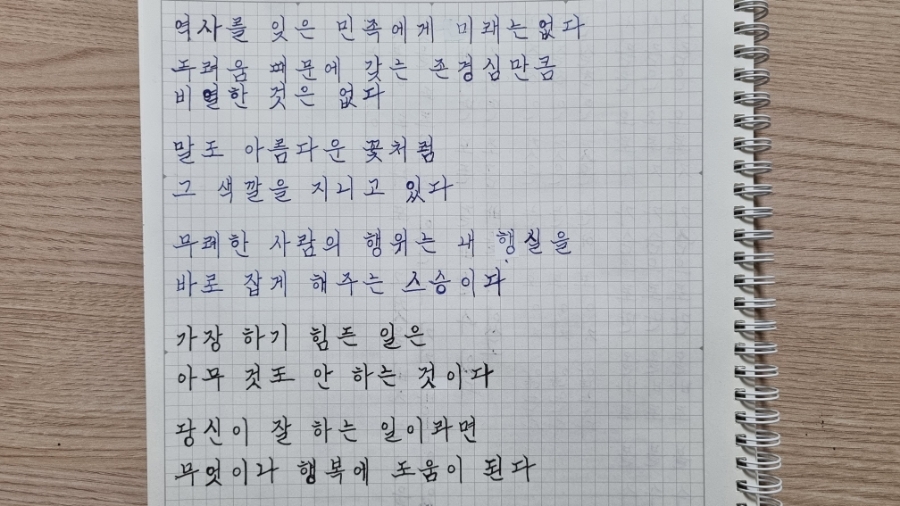 역사를 잊은 민족에게 미래는 없다
두려움 때문에 갖는 존경심만큼
비열한 것은 없다
말도 아름다운 꽃처럼
그 색깔을 지니고 있다
무례한 사람의 행위는 내 행실을
바로 잡게 해주는 스승이다
가장 하기 힘든 일은
아무 것도 안 하는 것이다
당신이 잘 하는 일이라면
무엇이나 행복에 도움이 된다